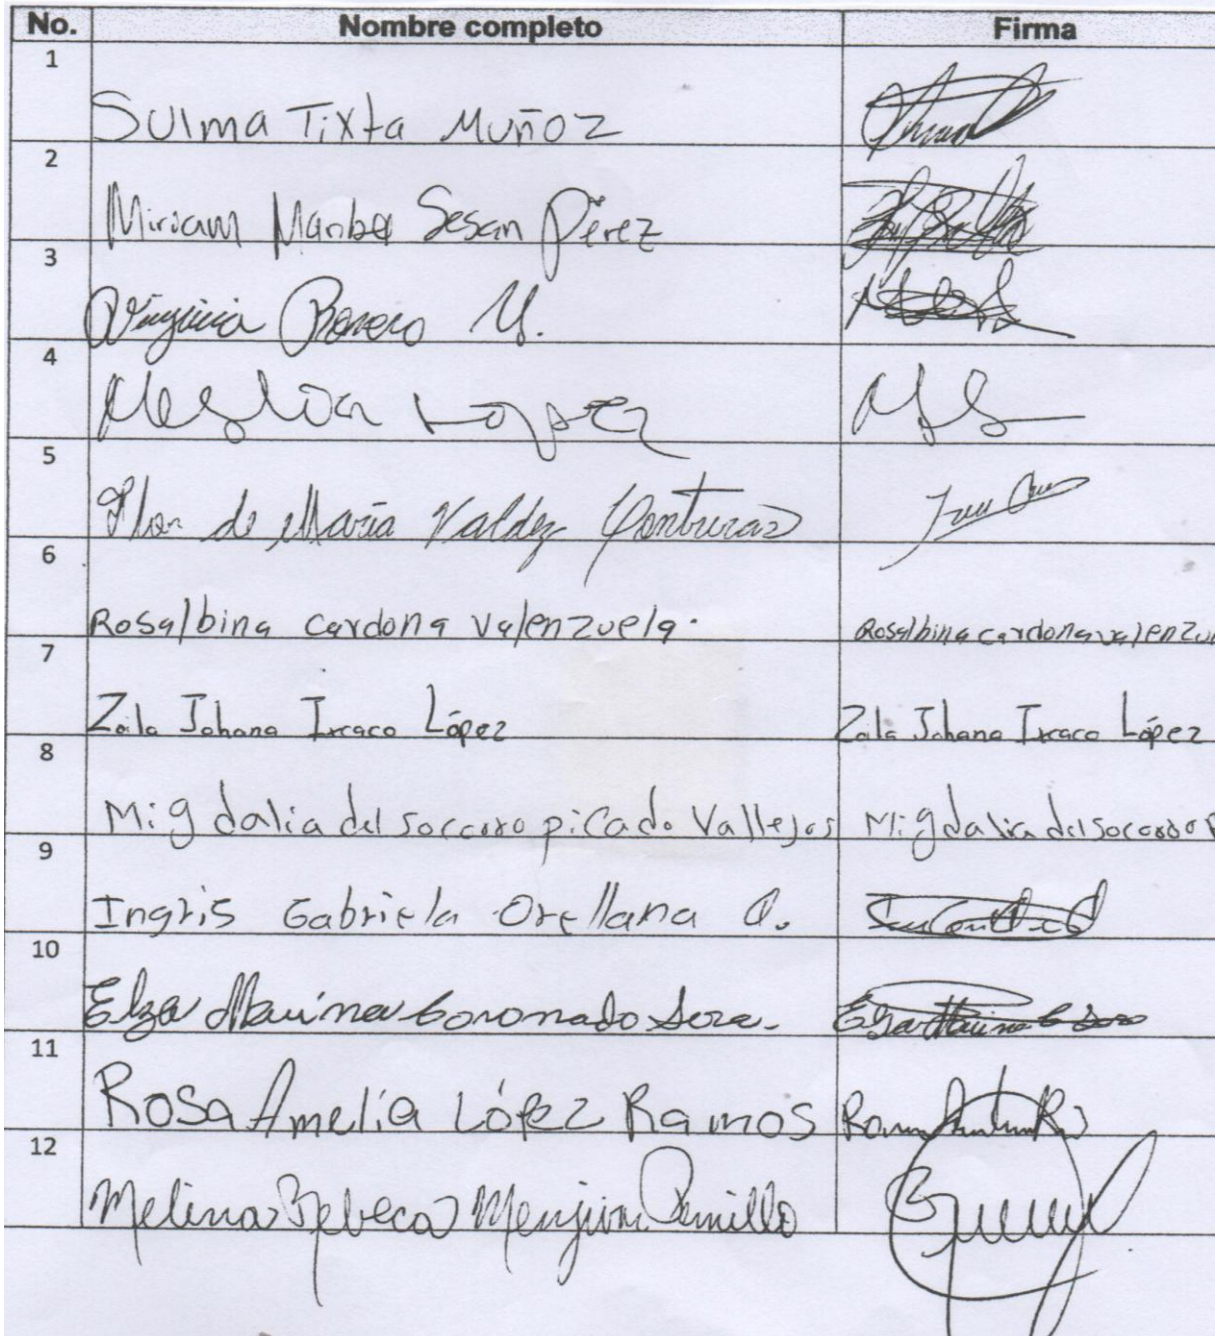 No. Nombre completo Firma
1
Sulma Tixta Muñoz
2
Miriam Maribel Sesan Pérez
3
Virginia Borero M.
4
López
5
Flor de María Valdez Contreras
6
Rosalbina cardona valenzuela. Rosalbina cardona valenzu
7
Zoila Johana Ixcaco López Zoila Johana Ixcaco López
8
Migdalia del socorro picado Vallejos Migdalia del socorro P
9
Ingris Gabriela Orellana
10
Elza Marina Coronado
11
Rosa Amelia López Ramos
12
Melina Rebeca Menjivar